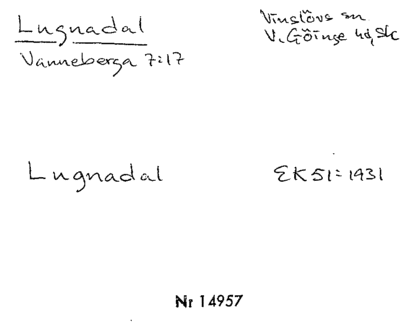 Lugnadal
Vanneberga 7:17
Vinslövs sn
V. Göinge hd, Sk
Lugnadal
EK 51: 1931
Nr 14957